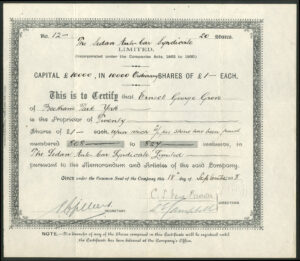 No. 12 20 Shares.
The Sedan Auto-Car Syndicate
LIMITED.
(Incorporated under the Companies Acts, 1862 to 1900)
CAPITAL £10000, IN 10000 Ordinary SHARES OF £1 EACH.
This is to Certify that Ernest George Grove
of York
is the Proprietor of Twenty
Shares of £1 each upon which per share has been paid
numbered 508 to 527 inclusive, in
The Sedan Auto-Car Syndicate Limited
pursuant to the Memorandum and Articles of the said Company.
GIVEN under the Common Seal of the Company this 18th day of September
DIRECTORS
SECRETARY
NOTE.—No Transfer of any of the Shares comprised in this Certificate will be registered until
the Certificate has been delivered at the Company's Office.